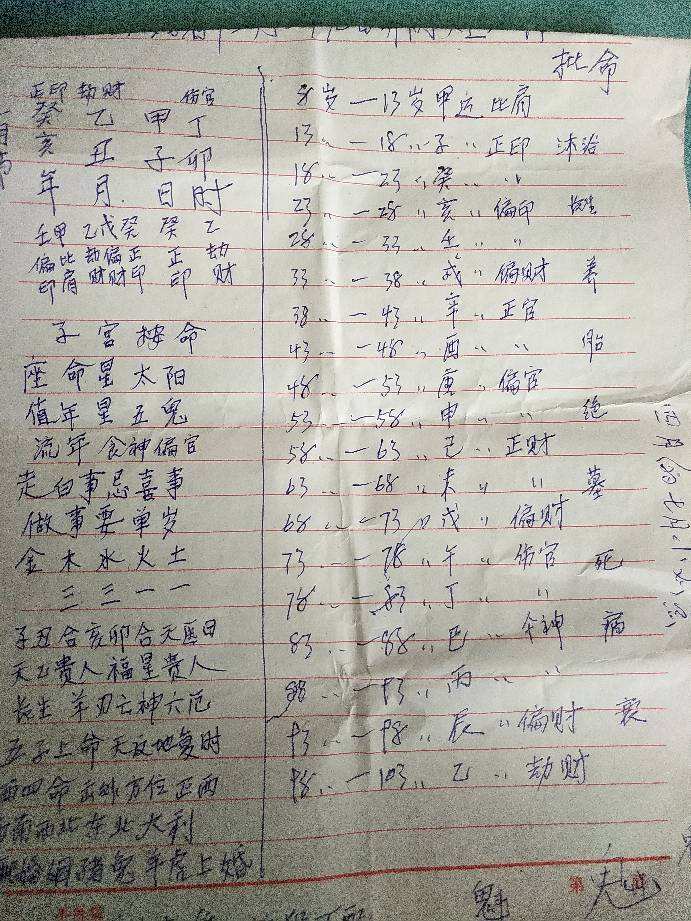 批命
正印 劫财 伤官
癸 乙 甲 丁
亥 丑 子 卯
年 月 日 时
壬甲 乙戊癸 癸 乙
偏比 劫偏正 正 劫
印肩 财财印 印 财
子宫按命
座命星太阳
值年星五鬼
流年食神偏官
走白事忌喜事
做事要单岁
金木水火土
三三一一
子丑合亥卯合天医日
天乙貴人福星贵人
长生羊刃亡神六厄
五子上命天反地复时
西四命 方位正西
南西北东北大利
猪兔羊虎上婚
8岁一13岁甲运比肩
13〃一18〃子〃正印 沐浴
18〃一23〃癸〃〃
23〃一28〃亥〃偏印
28〃一33〃壬〃〃
33〃一38〃戌〃偏财 养
38〃一43〃辛〃正官
43〃一48〃酉〃〃 胎
48〃一53〃庚〃偏官
53〃一58〃申〃〃 绝
58〃一63〃己〃正财
63〃一68〃未〃〃 墓
68〃一73〃戊〃偏财
73〃一78〃午〃伤官 死
78〃一83〃丁〃〃
83〃一88〃巳〃伞神 病
88〃一93〃丙〃〃
93〃一98〃辰〃偏财 衰
98〃一103〃乙〃劫财
第
魁